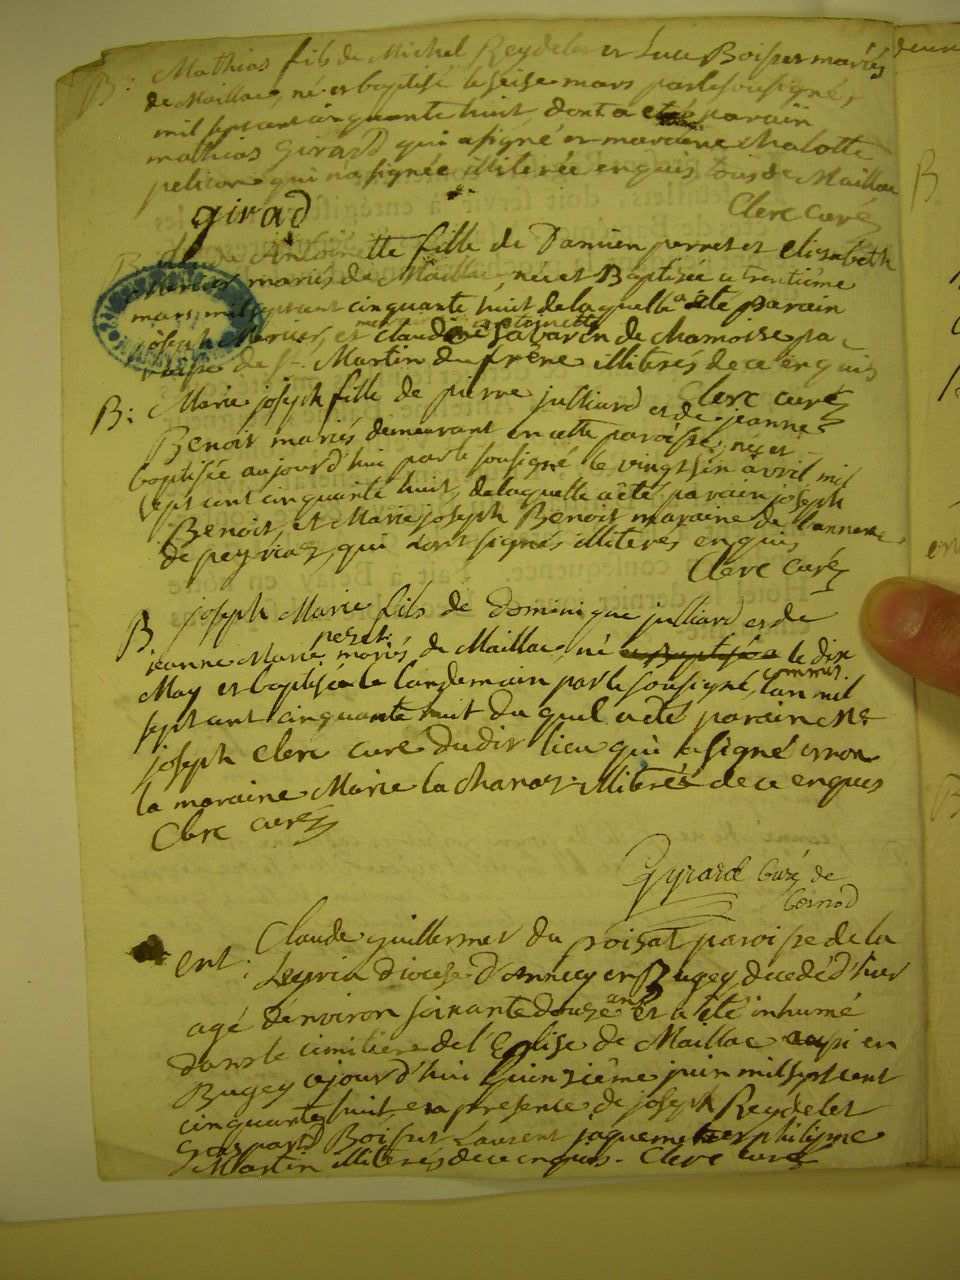 B: Mathias fils de Michel Reydelet et Luce Boisser mariés
de Maillac, né et baptisé le seise mars par le sousigné,
mil sept cent cinquante huit, dont a eté parain
mathias Girard qui a signé et maraine chalotte
pelicon qui na signée illiterée enquis tous de Maillac
girad
Clerc curé
B Antoinette fille de Damien perret et elisabeth
Mercier mariés de Maillac, née et Baptisée le trentième
mars mil sept cent cinquante huit de laquelle a eté parain
joseph Mercier, et Claudine antoinette Savarin de chamoise pa
roisse de St Martin du frêne illiterés de ce enquis
Clerc curé
B: Marie joseph fille de pierre julliard et de jeanne
Benoit mariés demeurant en cette paroisse, née et
baptisée aujourd'hui par le sousigné le vingt sin avril mil
sept cent cinquante huit, de laquelle a êté parain joseph
Benoit, et Marie joseph Benoit maraine de
de peyriaz, qui sont signés illiteres enquis
Clerc curé
B joseph Marie fils de dominique julliard et de
jeanne Marie perret mariés de Maillac, né le dix
May et baptisé le landemain par le sousigné, l'an mil
sept cent cinquante huit du quel a êté parain Mr
joseph clerc curé dudit lieu qui a signé et non
la maraine Marie la charaz illiterée de ce enquis
Clerc curé
Gyrard Curé de
Cernod
ent: Claude guillermet du poisat paroisse de la
Leyria diocese d'annecy en Bugey decedé d'hier
agé d'environ soixante douze ans et a êté inhumé
dans le cimitiere de l'Eglise de Maillac aussi en
Bugey ajourd'hui quinzième juin mil sept cent
cinquante huit en presence de joseph Reydelet
gaspard Boisser Laurent jaquemet et philippe
Martin illiterés de ce enquis. Clerc curé